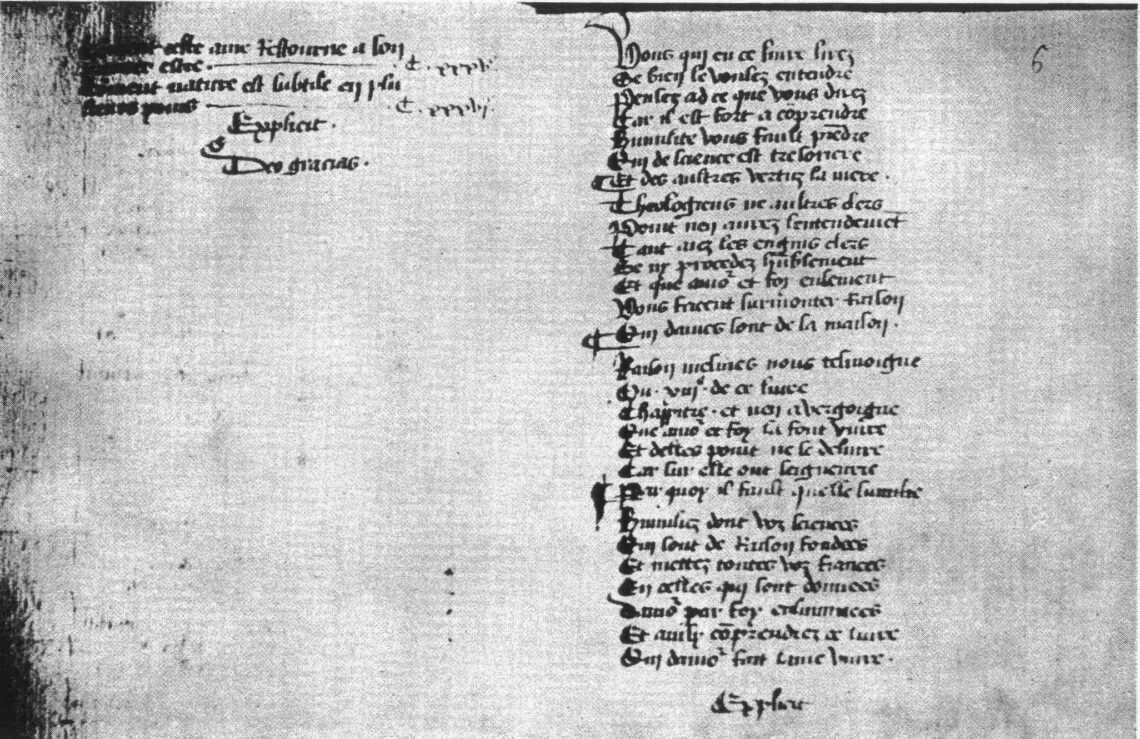 Comment ceste ame Retourne a son
premier estre. C. xxxv.
Comment nature est subtile en plu
sieurs poins C. xxxvj.
Explicit.
Deo gracias.
6
Vous qui en ce livre lirez
Se bien le voulez entendre
Pensez ad ce que vous direz
Car il est fort a cõprendre
Humilite vous fault prẽdre
Qui de science est tresoriere
Et des aultres vertuz la mere.
Theologiens ne aultres clers
Point nen aurez lentendement
Tant aiez les engins clers
Se ny procedez hũblement
Et que amoʳ et foy ensement
Vous facent surmonter Raison
Qui dames sont de la maison.
Raison mesmes nous tesmoigne
Ou . de ce livre
Chapitre. et nen a vergoigne
Que amoʳ et foy la font vivre
Et delles point ne se delivre
Car sur elle ont seigneurie
Par quoy il fault quelle sumilie
Humiliez dont voz sciences
Qui sont de Raison fondees
Et mettez toutes voz fiances
En celles qui sont donnees
Damoʳ par foy enluminees
Et ainsy cõprendrez ce livre
Qui damoʳ fait lame vivre.
Explicit